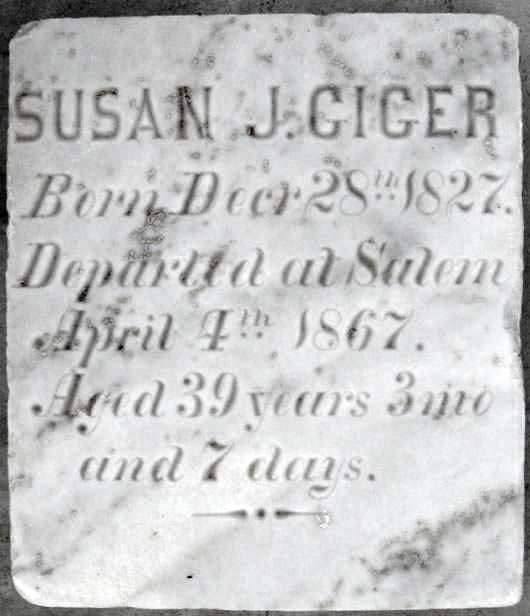 SUSAN J. GIGER
Born Decr 28th 1827.
Departed at Salem
April 4th 1867.
Aged 39 years 3 mo
and 7 days.